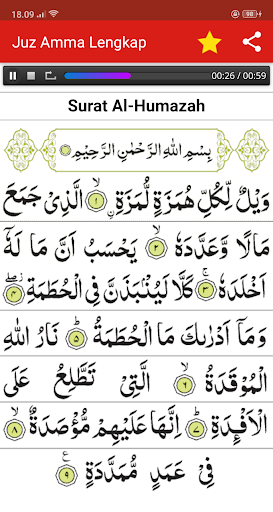 18.09
98
Juz Amma Lengkap
00:26 / 00:59
Surat Al-Humazah
بِسْمِ اللّٰهِ الرَّحْمٰنِ الرَّحِيْمِ
وَيْلٌ لِّكُلِّ هُمَزَةٍ لُّمَزَةٍۙ ۝١ ۨالَّذِيْ جَمَعَ
مَالًا وَّعَدَّدَهٗۙ ۝٢ يَحْسَبُ اَنَّ مَا لَهٗٓ
اَخْلَدَهٗۚ ۝٣ كَلَّا لَيُنْۢبَذَنَّ فِى الْحُطَمَةِۖ ۝٤
وَمَآ اَدْرٰىكَ مَا الْحُطَمَةُۗ ۝٥ نَارُ اللّٰهِ
الْمُوْقَدَةُۙ ۝٦ الَّتِيْ تَطَّلِعُ عَلَى
الْاَفْـِٕدَةِۗ ۝٧ اِنَّهَا عَلَيْهِمْ مُّؤْصَدَةٌۙ ۝٨
فِيْ عَمَدٍ مُّمَدَّدَةٍࣖ ۝٩